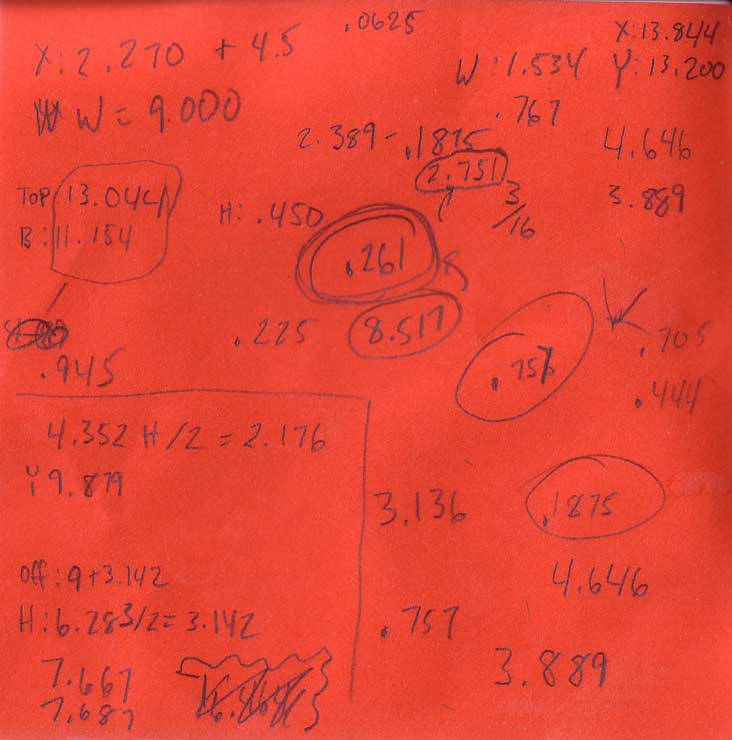 X: 2.270 + 4.5
.0625
X: 13.844
W: 1.534
Y: 13.200
W = 9.000
.767
2.389 - .1875
4.646
2.751
3/16
3.889
TOP 13.044
B: 11.154
H: .450
.261
.225
8.517
.757
.705
.444
.945
4.352 H/2 = 2.176
Y 9.879
3.136
.1875
Off: 9+3.142
4.646
H: 6.283/2 = 3.142
.757
3.889
7.667
7.687